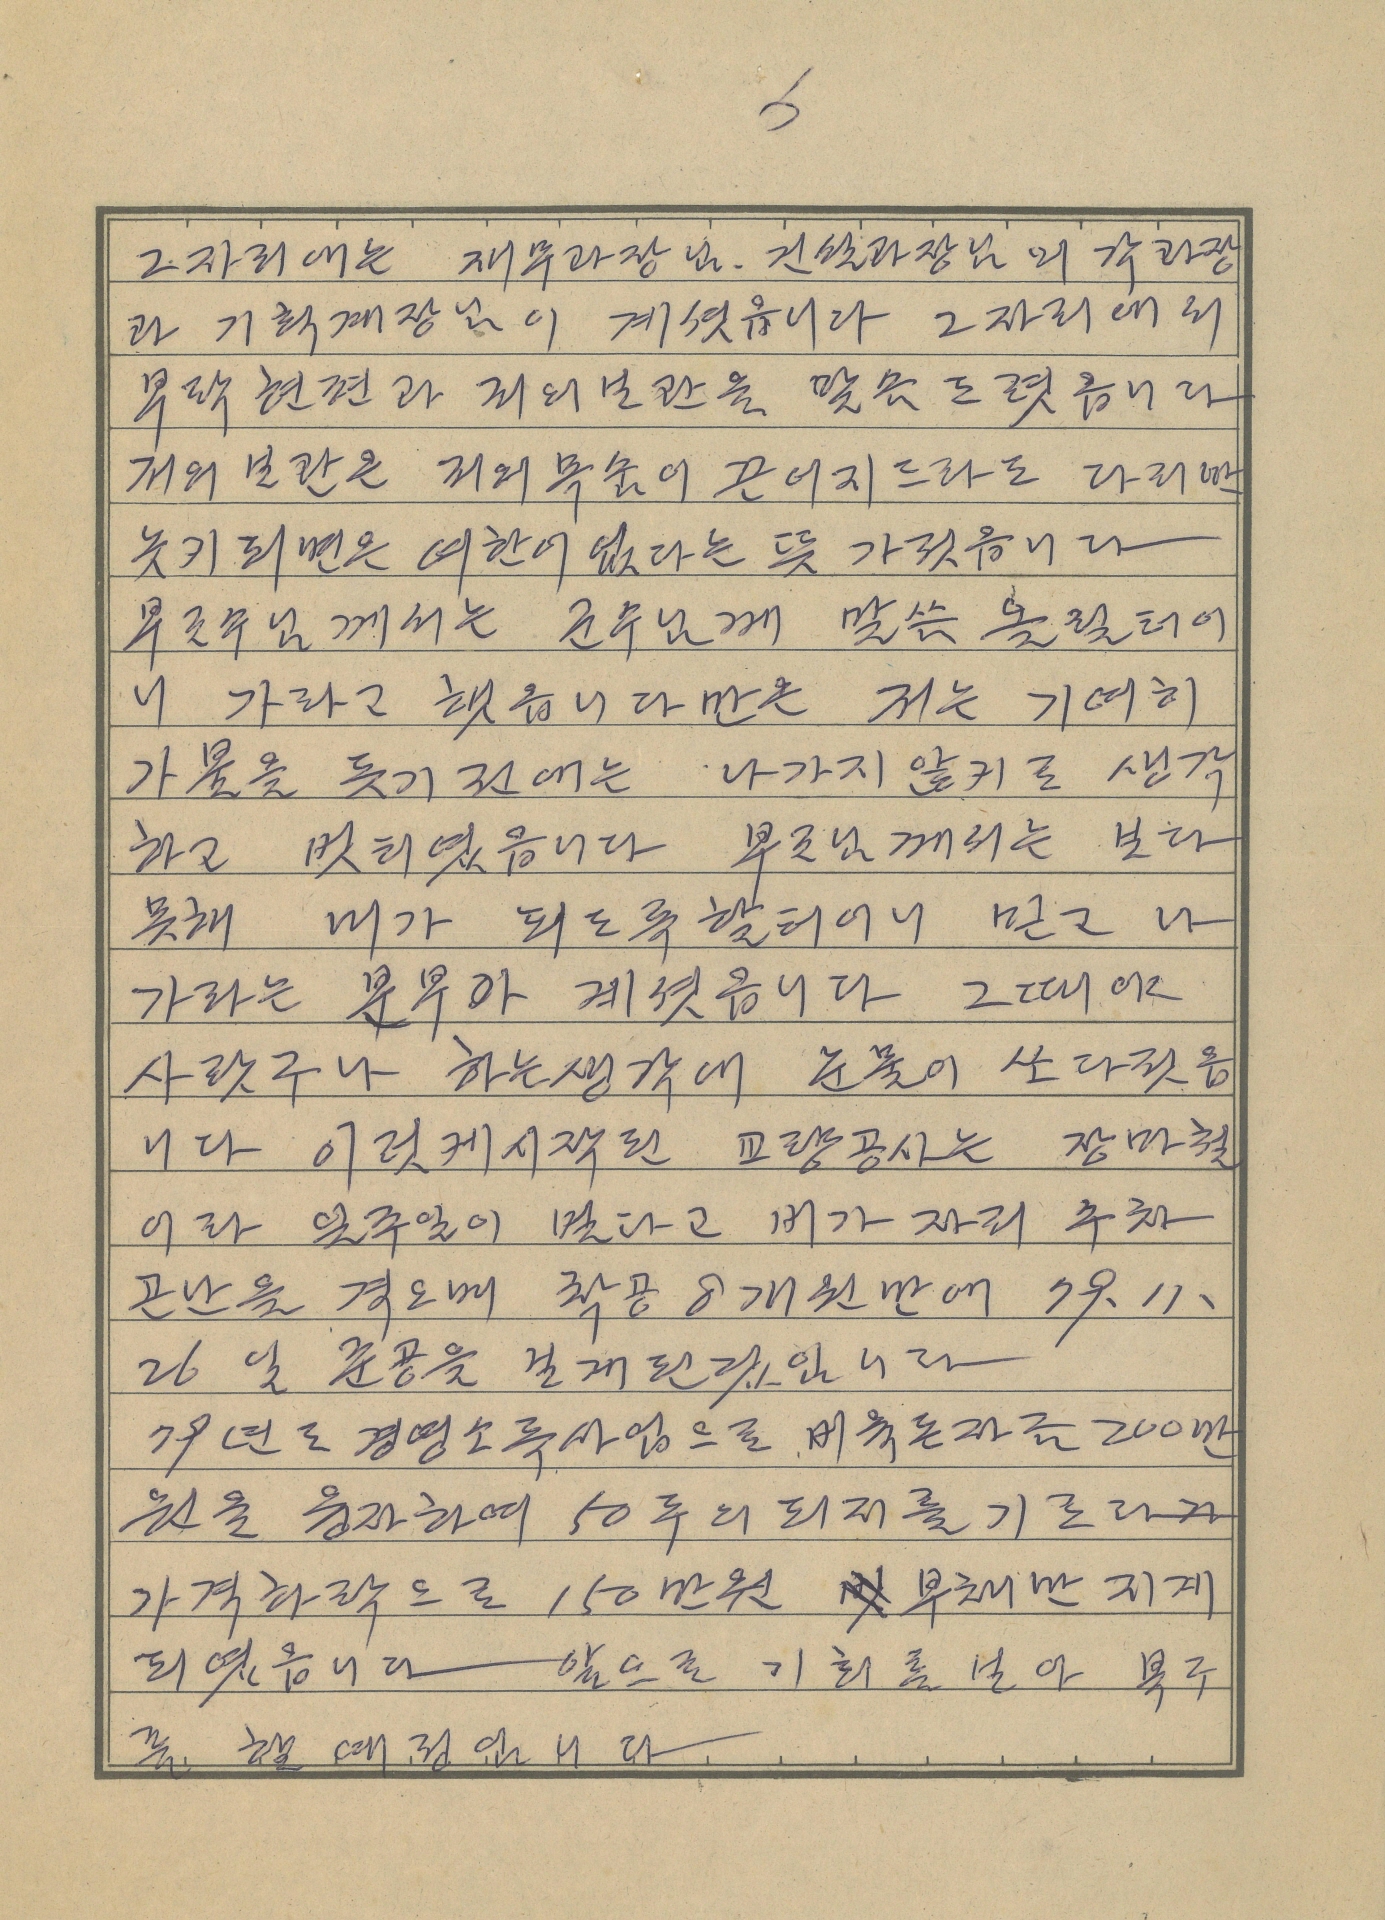 6
그자리애는 재무과장님. 건설과장님 외 각과장
과 기획계장님이 계셧읍니다 그자리애서
부락현편과 저의보관을 말씀드렷읍니다
저의보관은 저의목숨이 끈어지드라도 다리만
놋키되면은 여한이없다는 뜻 가젓읍니다
부군수님께서는 군수님께 말씀 올릴터이
니 가라고 햇읍니다만은 저는 기여히
가불을 듯기전애는 나가지않키로 생각
하고 벗티였읍니다 부군님께서는 보다
못해 내가 되도록할터이니 믿고 나
가라는 분부아 계셧읍니다 그때야
사랏구나 하는생각애 눈물이 쏘다젓읍
니다 이럿케시작된 교량공사는 장마철
이라 일주일이 멀다고 비가 자리 추차
곤난을 격으며 착공 8개월만애 79. 11.
26 일 준공을 걸개된것입니다
79년도 경영소득사업으로 비육돈자금 200만
원을 융자하여 50두의 되지를 기르다가
가격하락으로 150만원 부채만 지게
되였읍니다 앞으로 기회를 보아 복구
를 핼 예정입니다